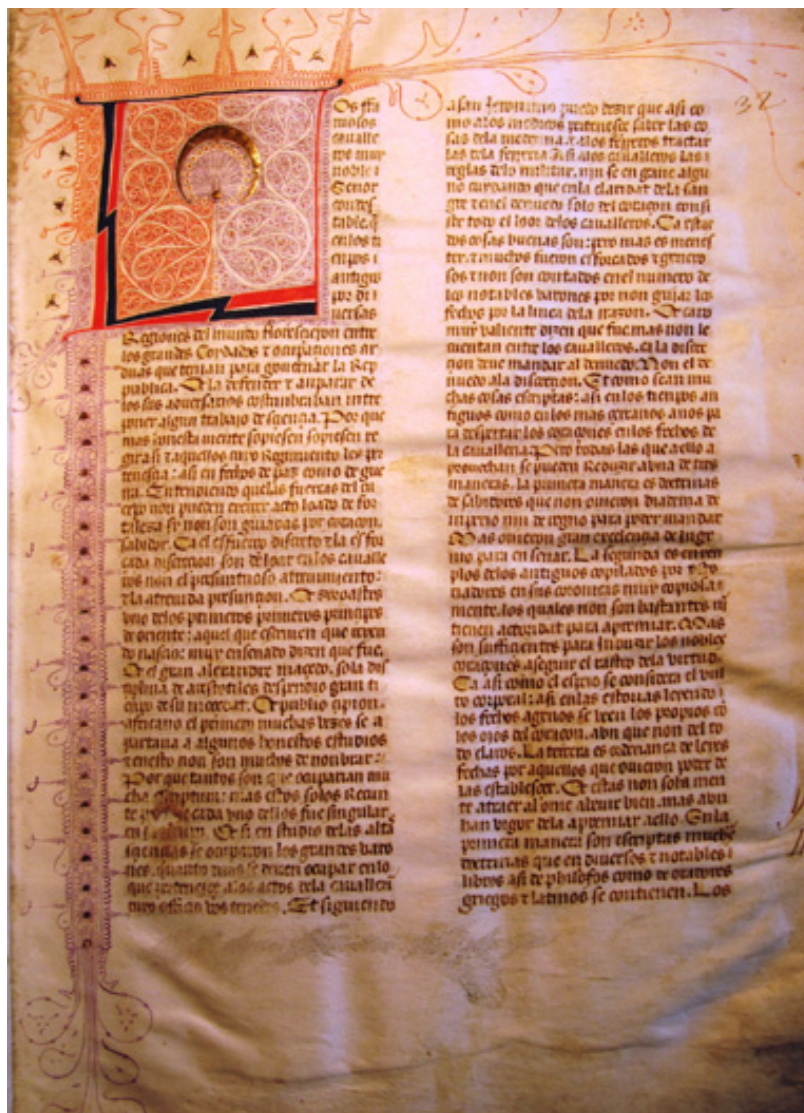 Os fa
mosos
caualle
ros muy
noble i
Senor
condes
table. q
en los ti
enpos i
antigos
por di i
uersas
Regiones del mundo florescieron entre
los grandes Coydados τ ocupaçiones ar
duas que tenian para gouernar la Rep
publica. Et la defender τ anparar de
los sus aduersarios costunbrauan entre
poner algun trabajo de sçiençia. Por que
mas onesta mente sopiesen sopiesen re
gir asi τ aquellos cuyo Regimiento les per
tenesçia: asi en fechos de paz como de gue
rra. Entendiendo quelas fuerças del cu
erpo non pueden exerçer acto loado de for
taleza si non son guiadas por coraçon
sabidor. Ca el esfuerço discreto τ la esfor
çada discreçion son de loar en los caualle
ros non el presuntuoso atreuimiento:
τ la atreuida presunçion. Et
vno delos primeros primeros prinçipes
de oriente: aquel que escriuen que riyen
do nasçio: muy ensenado dizen que fue,
Et el gran alexandre maçedo. sola dis
çiplina de aristotiles despendio gran ti
enpo de su moçedat. Et publio çipion.
africano el primero muchas vezes se a
partaua a algunos honestos estudios
τ en esto non son muchos de nonbrar:
Por que tantos son que ocuparian mu
cha scriptura: mas estos solos Recon
te por que cada vno dellos fue singular
en Et si en studio delas altas
sçiençias se ocuparon los grandes varo
nes. quanto mas se deuen ocupar en lo
que pertenesçe alos actos dela caualleri
cuyo ofiçio vos tenedes. Et siguiendo
32
a san Jeronimo puedo dezir que asi co
mo alos medicos pertenesçe saber las co
sas dela mediçina. τ alos ferreros tractar
las dela ferreria Asi alos caualleros las i
reglas delo militar. nin se engane algu
no cuydando que en la claridat dela san
gre τ en el denuedo solo del coraçon consi
ste todo el loor delos caualleros. Ca estas
dos cosas buenas son: pero mas es menes
ter. τ muchos fueron esforçados τ genero
sos τ non son contados en el numero de
los notables varones por non guiar los
fechos por la linea dela razon. Et caro
muy valiente dizen que fue mas non le
cuentan entre los caualleros. ca la discre
çion deue mandar al denuedo. Non el de
nuedo ala discreçion. Et como sean mu
chas cosas escriptas: asi en los tienpos an
tiguos como en los mas çercanos anos pa
ra despertar los coraçones en los fechos de
la caualleria. Pero todas las que a ello a
prouechan se pueden Reduzir a vna de tres
maneras. La primera manera es doctrinas
de sabidores que non ouieron diadema de
inperio nin de regno para poder mandar
Mas ouieron gran exçelençia de inge
nio para en senar. La segunda es enxen
plos delos antiguos copilados por
tiadores en sus coronicas muy copiosa
mente. los quales non son bastantes ni
tienen actoridat para apremiar. Mas
son sufiçientes para Induzir los nobles
coraçones a seguir el rastro dela virtud.
Ca asi como el espeio se considera el vulto
corporal: asi en las estorias leyendo i
los fechos agenos se veen los propios co
los ojos del coraçon. avn que non del to
do claros. La terçera es ordenança de leyes
fechas por aquellos que ouieron poder de
las establesçer. Et estas non sola men
te atraer al ome a beuir bien. mas avn
han vigor dela apremiar a ello. En la
primera manera son escriptas muchas
doctrinas que en diuersos τ notables i
libros asi de philosofos como de oradores
griegos τ latinos se contienen. Los